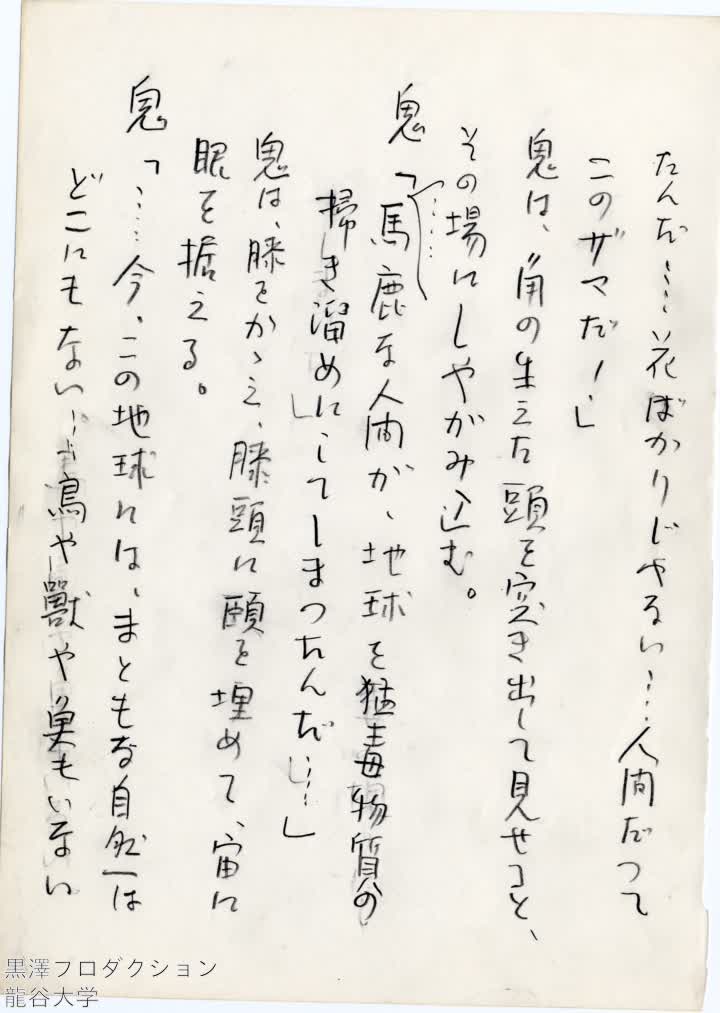 たんだ……花ばかりじやない……人間だつて
このザマだ！」
鬼は、角の生えた頭を突き出して見せると、
その場にしやがみ込む。
鬼「……
馬鹿な人間が、地球を猛毒物質の
掃き溜めにしてしまつたんだ……」
鬼は、膝をかゝえ、膝頭に頤を埋めて、宙に
眼を据える。
鬼「……今、この地球には、まともな自然は
どこにもない……鳥や獸や魚もいない
黒澤プロダクション
龍谷大学